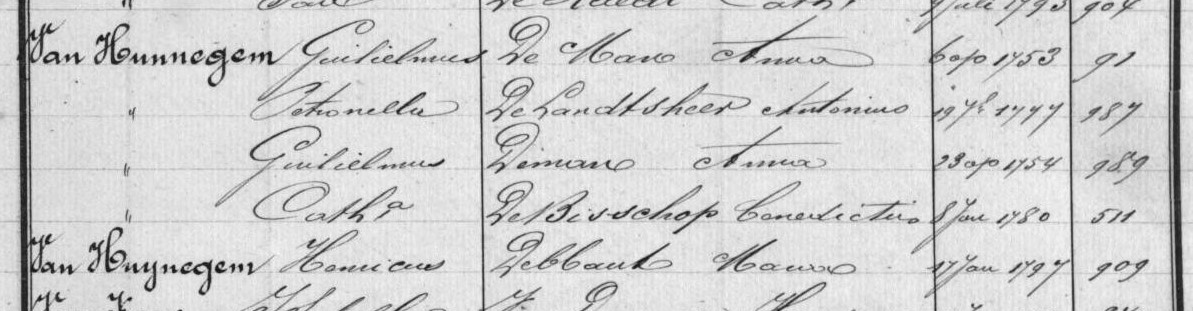 " De Cath. 1793 904
Van Hunnegem Guilielmus De Man Anna 6 ap 1753 91
" Petronella De Landtsheer Antonius 19 7b 1777 987
" Guilielmus Diman Anna 23 ap 1754 989
" Catha De Bisschop Benedictus 8 Jan 1780 511
Van Huynegem Henricus Debbaut Maria 17 Jan 1797 909